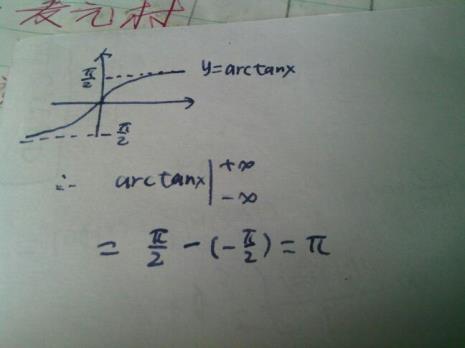 y=arctanx
π/2
-π/2
∴ arctanx|+∞
-∞
= π/2 - (-π/2) = π